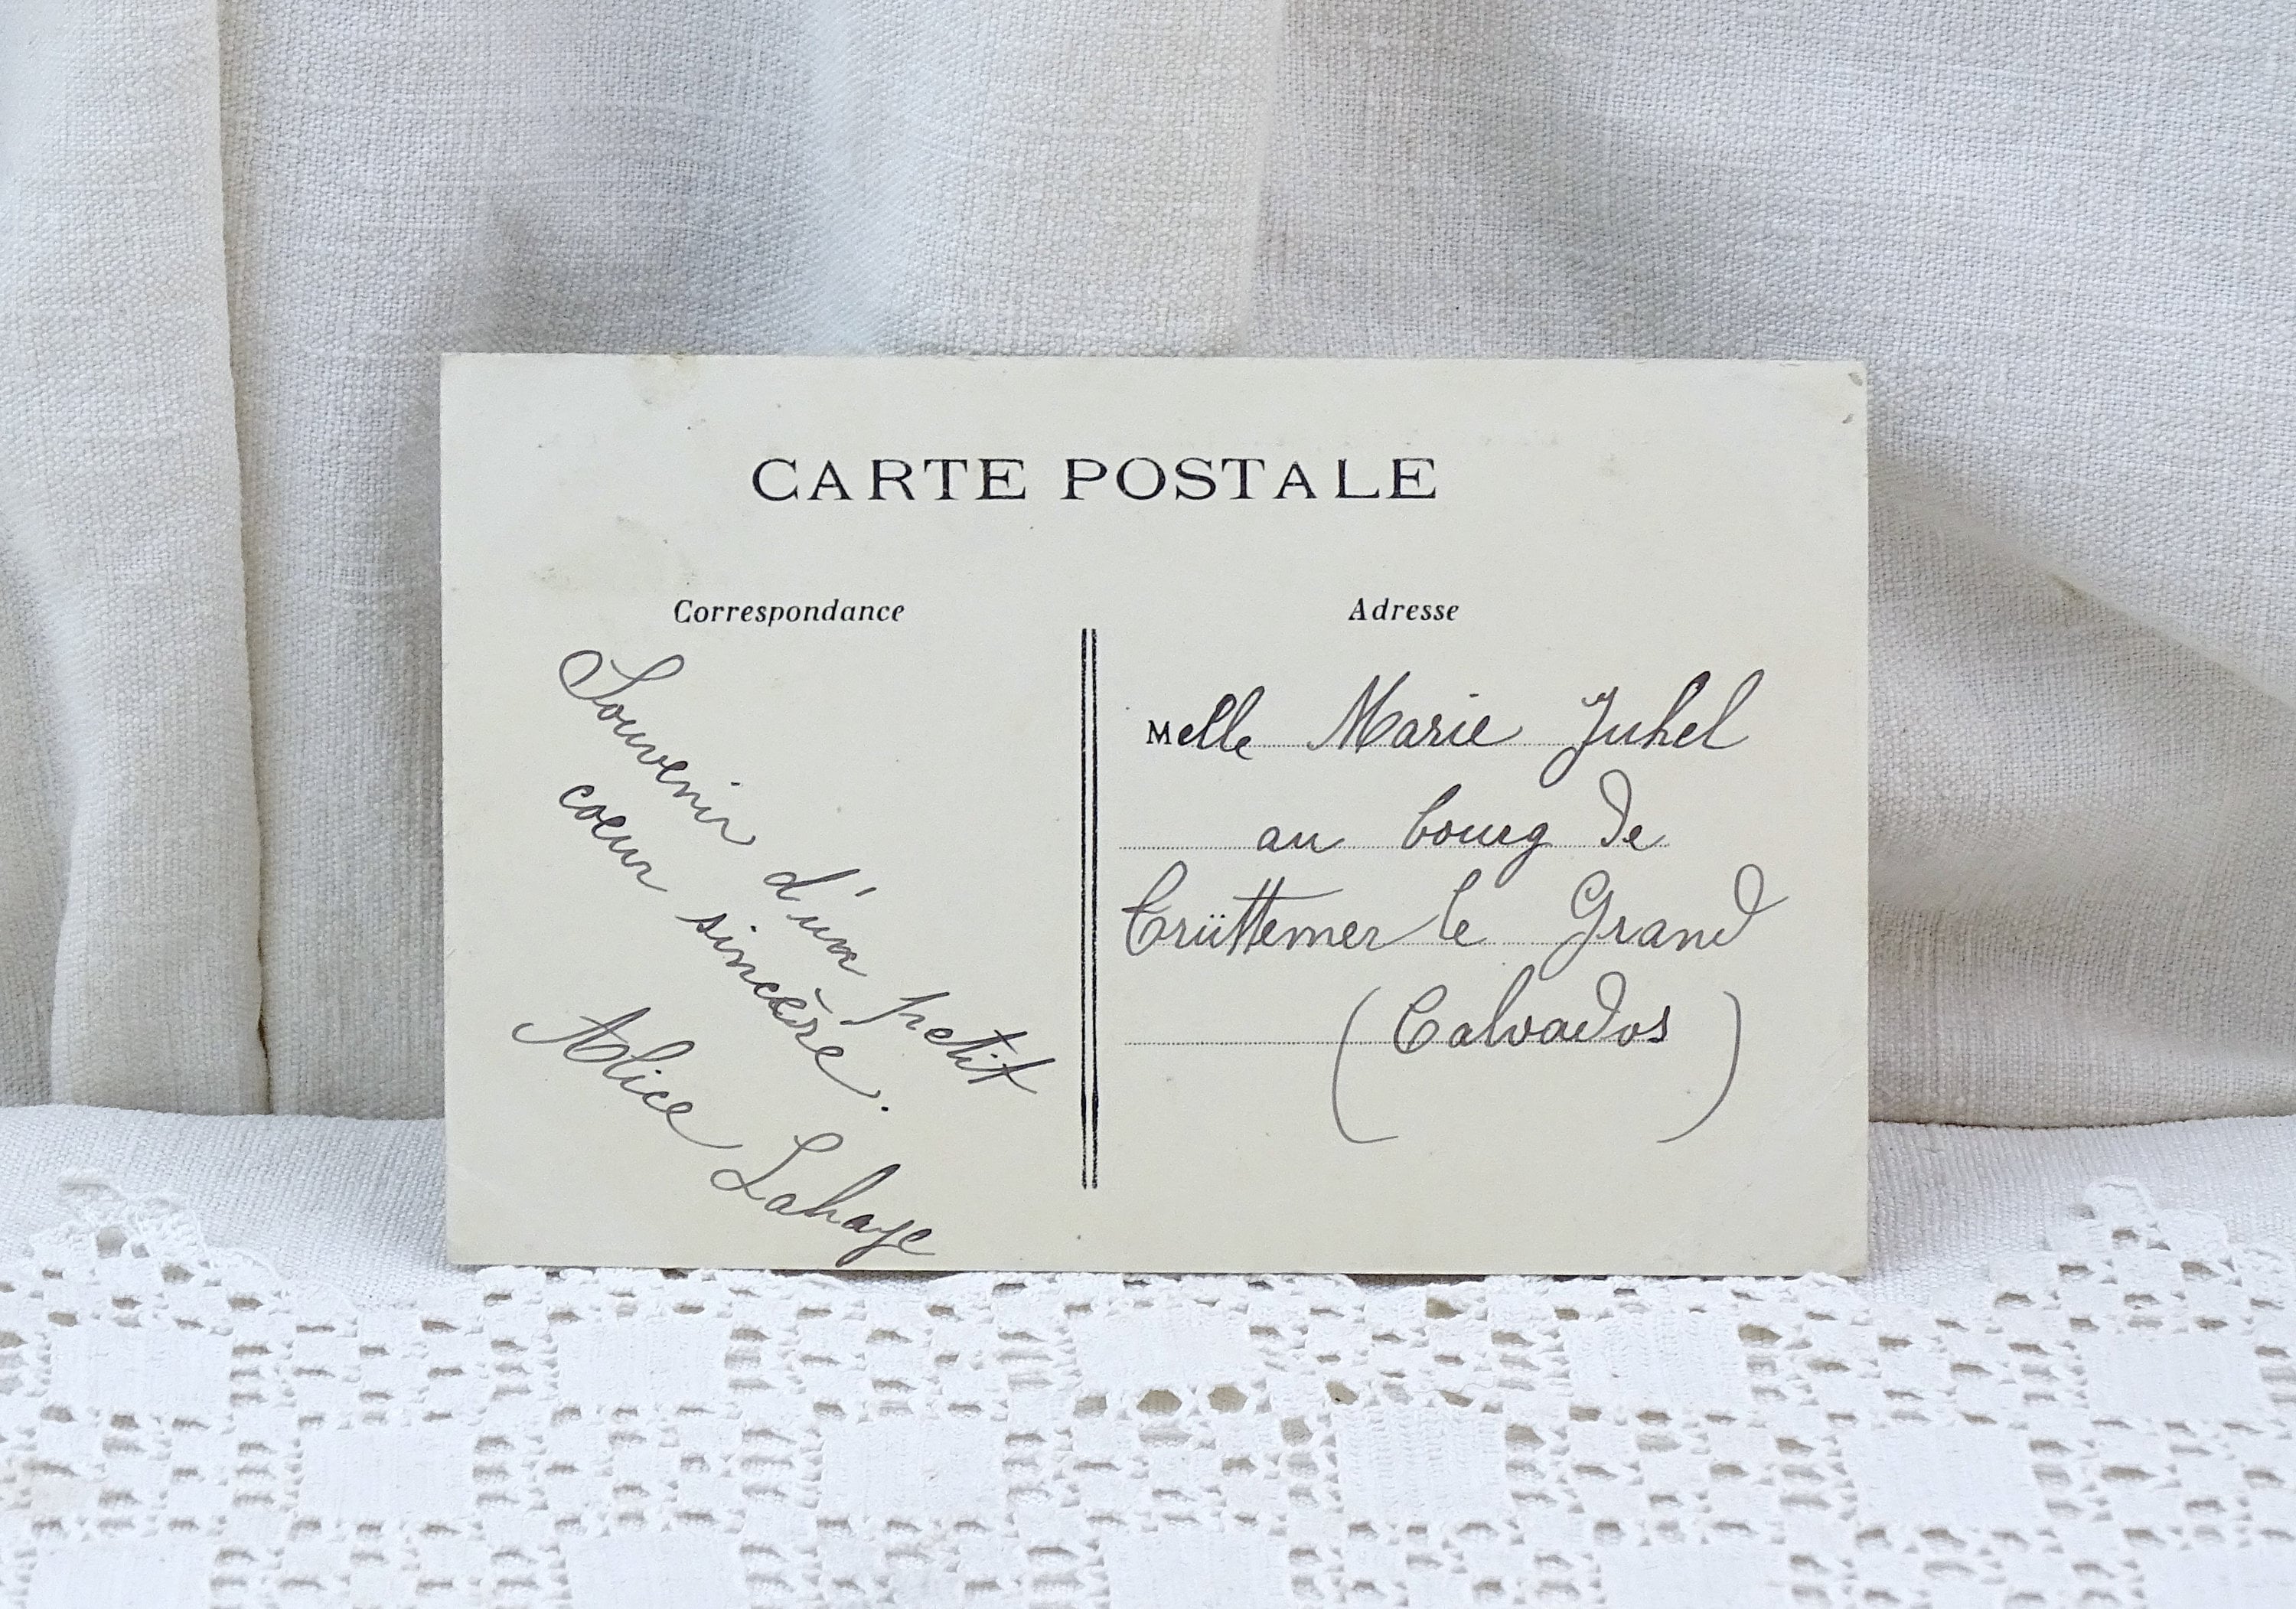 CARTE POSTALE
Correspondance
Souvenir d'un petit
coeur sincère.
Alice Lahaye
Adresse
Melle Marie Juhel
au bourg de
Trüttemer le Grand
(Calvados)